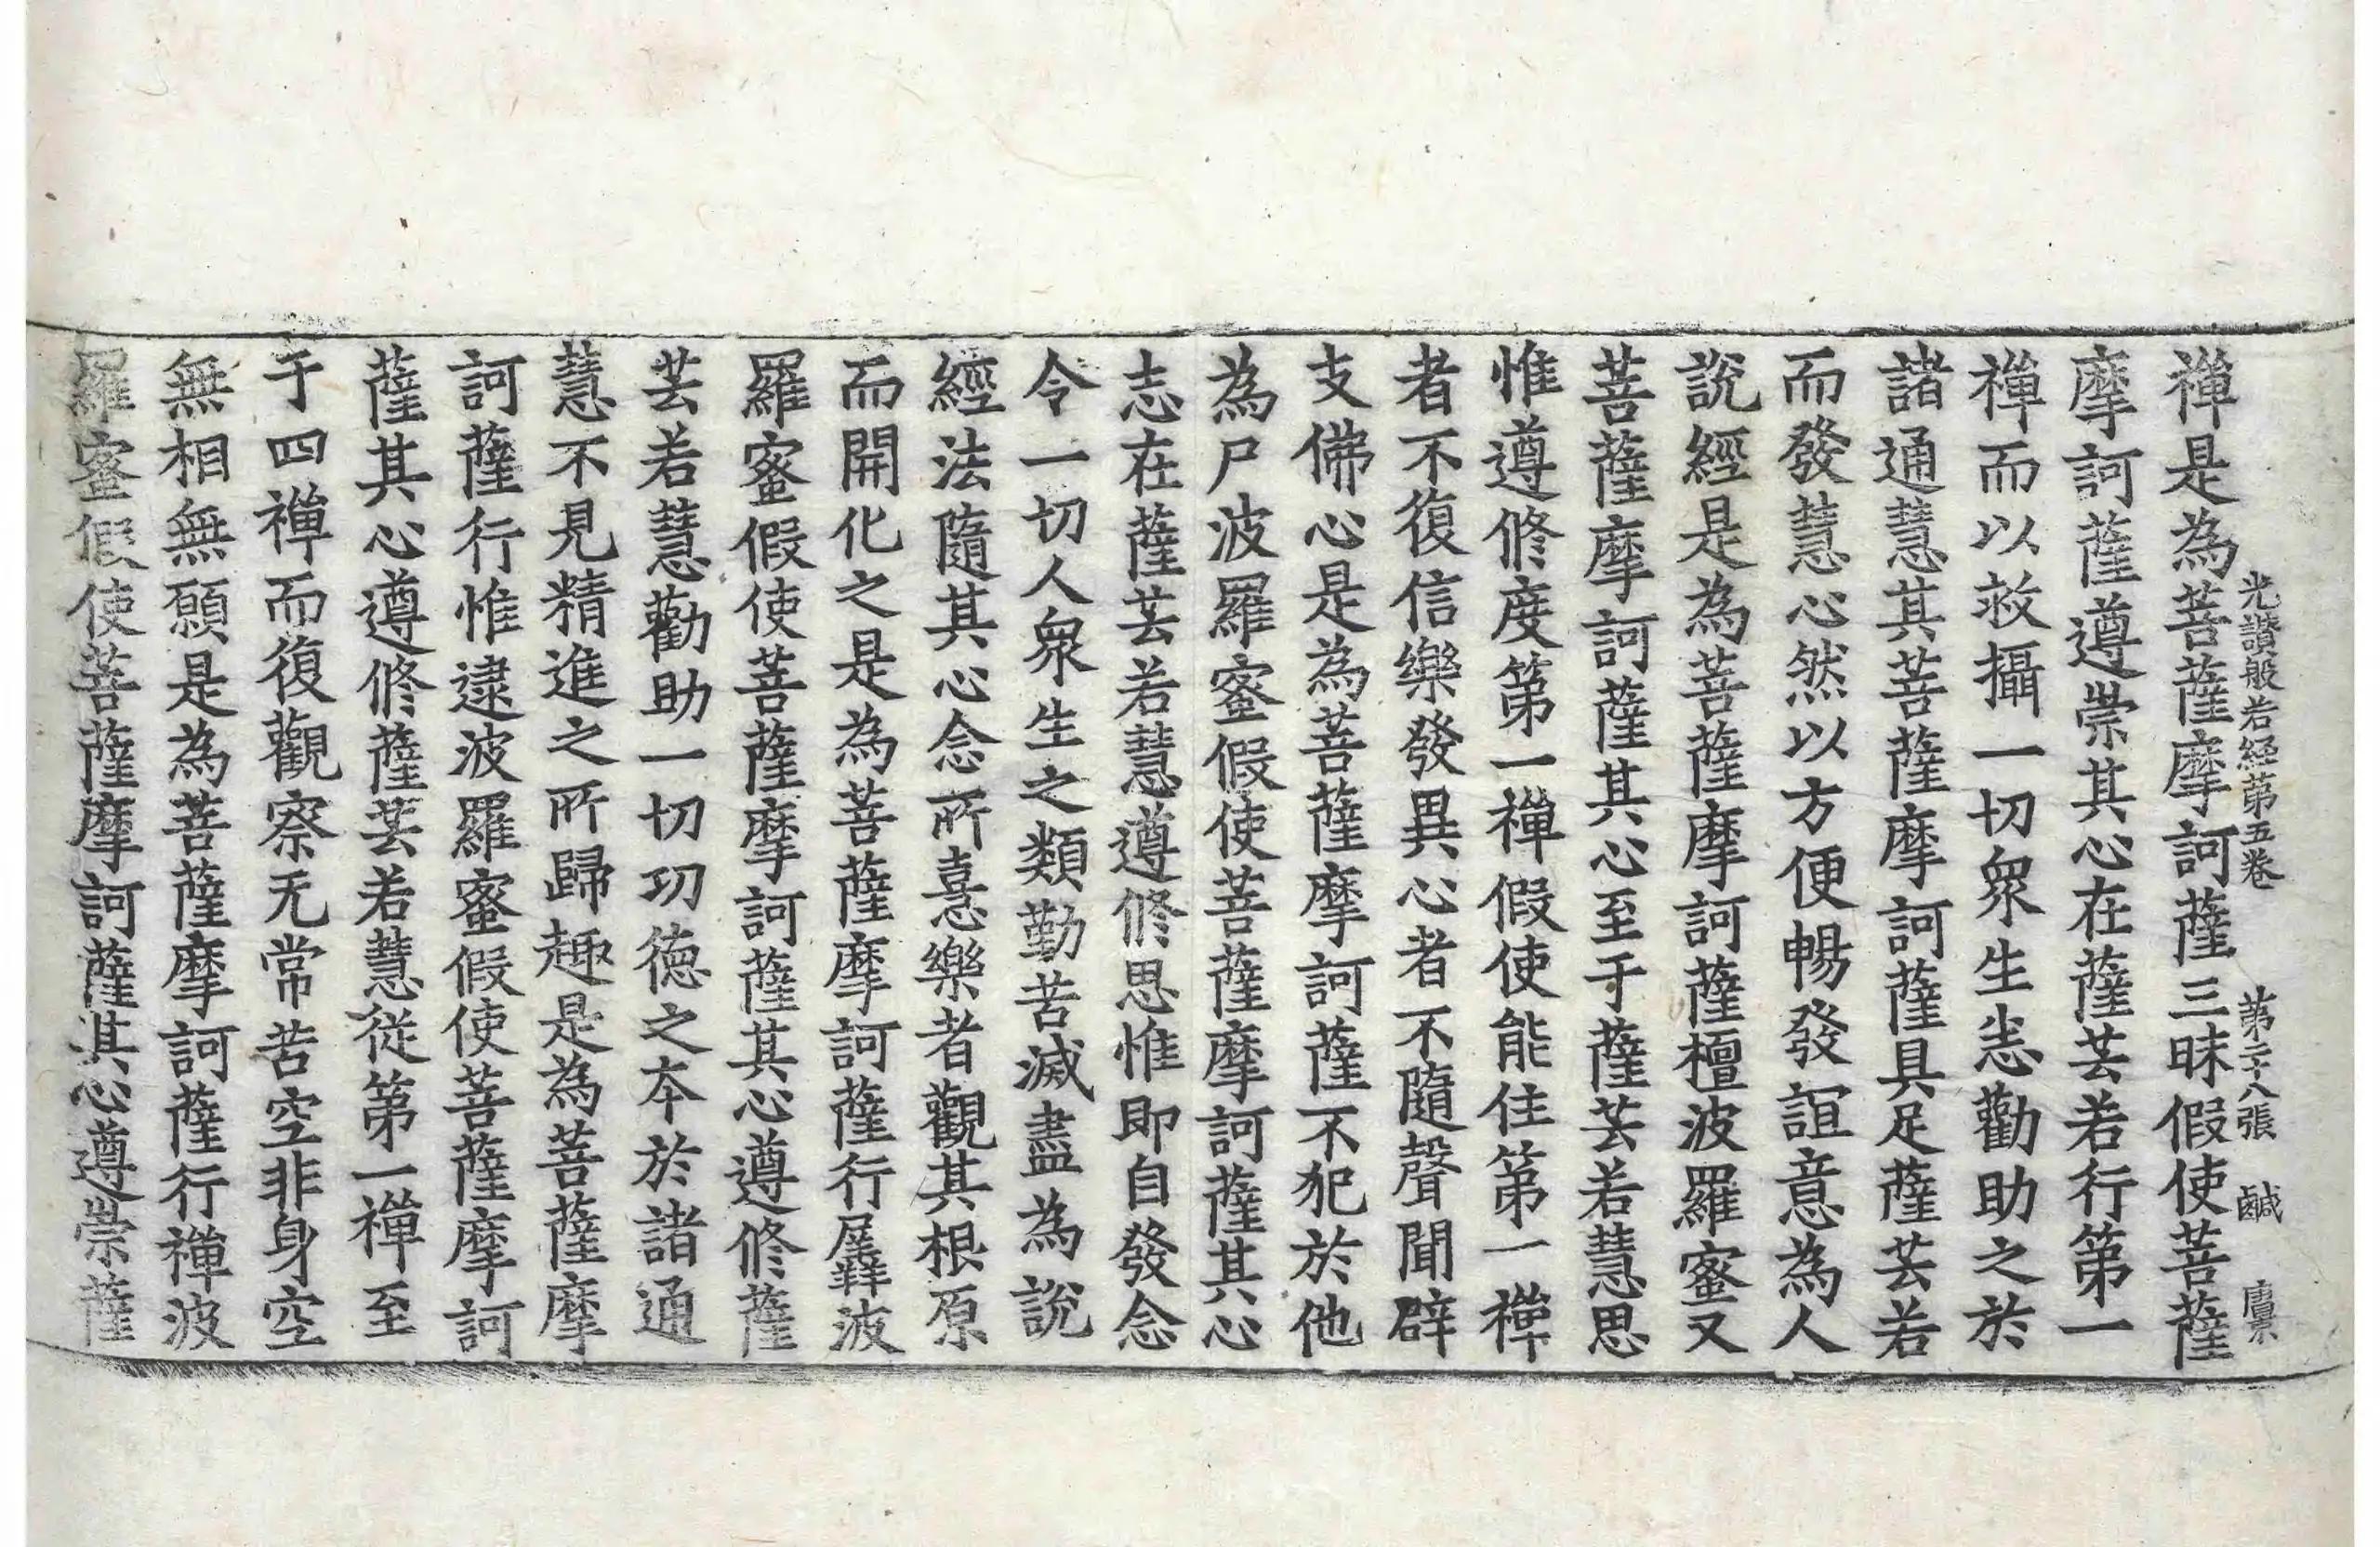 光讃般若経第五巻　第二十八張　鹹
禅是為菩薩摩訶薩三昧假使菩薩
摩訶薩遵崇其心在薩芸若行第一
禅而以救攝一切衆生恙勸助之於
諸通慧其菩薩摩訶薩具足薩芸若
而發慧心然以方便暢發誼意為人
說經是為菩薩摩訶薩檀波羅蜜又
菩薩摩訶薩其心至于薩芸若慧思
惟遵修度第一禅假使能住第一禅
者不復信樂發異心者不隨聲聞辟
支佛心是為菩薩摩訶薩不犯於他
為尸波羅蜜假使菩薩摩訶薩其心
志在薩芸若慧遵修思惟即自發念
令一切人衆生之類勤苦滅盡為說
經法隨其心念所憙樂者觀其根原
而開化之是為菩薩摩訶薩行羼波
羅蜜假使菩薩摩訶薩其心遵修薩
芸若慧勸助一切功德之本於諸通
慧不見精進之所歸趣是為菩薩摩
訶薩行惟逮波羅蜜假使菩薩摩訶
薩其心遵修薩芸若慧從第一禅至
于四禅而復觀察无常苦空非身空
無相無願是為菩薩摩訶薩行禅波
羅蜜假使菩薩摩訶薩其心遵崇薩